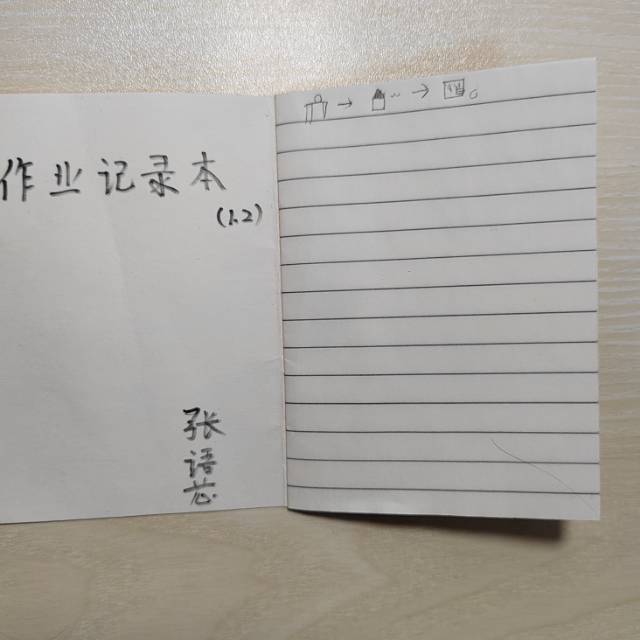 作业记录本
(1.2)
张语